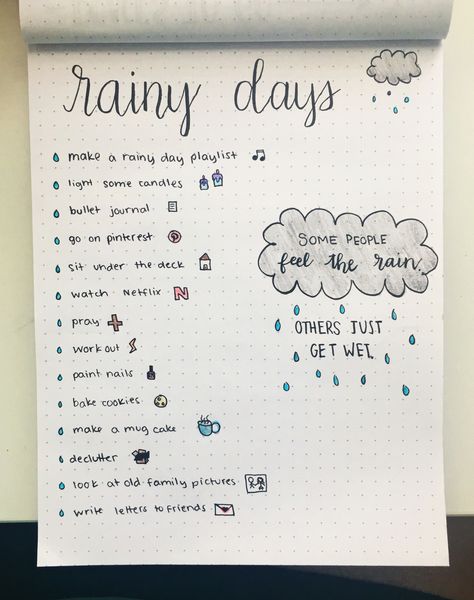 rainy days
make a rainy day playlist
light some candles
bullet journal
go on pinterest
sit under the deck
watch Netflix N
pray
work out
paint nails
bake cookies
make a mug cake
declutter
look at old family pictures
write letters to friends
SOME PEOPLE
feel the rain.
OTHERS JUST
GET WET.